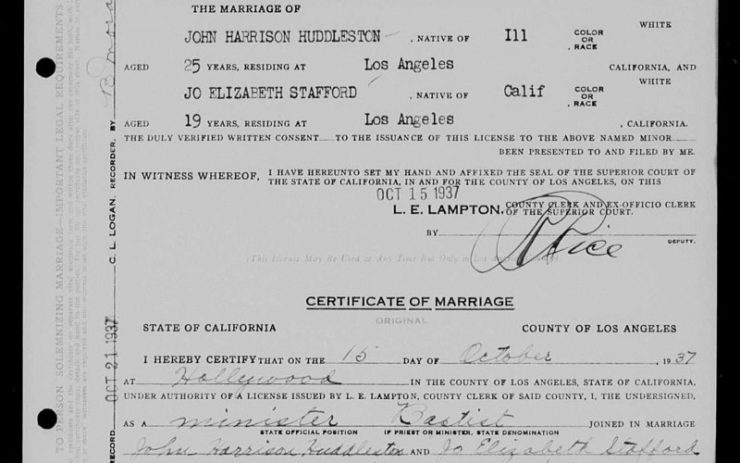 THE MARRIAGE OF
JOHN HARRISON HUDDLESTON , NATIVE OF Ill COLOR OR RACE WHITE
AGED 25 YEARS, RESIDING AT Los Angeles CALIFORNIA, AND
JO ELIZABETH STAFFORD , NATIVE OF Calif COLOR OR RACE WHITE
AGED 19 YEARS, RESIDING AT Los Angeles , CALIFORNIA.
THE DULY VERIFIED WRITTEN CONSENT TO THE ISSUANCE OF THIS LICENSE TO THE ABOVE NAMED MINOR
BEEN PRESENTED TO AND FILED BY ME.
IN WITNESS WHEREOF, I HAVE HEREUNTO SET MY HAND AND AFFIXED THE SEAL OF THE SUPERIOR COURT OF
THE STATE OF CALIFORNIA, IN AND FOR THE COUNTY OF LOS ANGELES, ON THIS
OCT 15 1937
L. E. LAMPTON, COUNTY CLERK AND EX-OFFICIO CLERK
OF THE SUPERIOR COURT.
BY Rice
DEPUTY.
(This License May Be Used at Any Time But Only in Los
CERTIFICATE OF MARRIAGE
ORIGINAL
STATE OF CALIFORNIA COUNTY OF LOS ANGELES
I HEREBY CERTIFY THAT ON THE 15 DAY OF October , 1937
AT Hollywood IN THE COUNTY OF LOS ANGELES, STATE OF CALIFORNIA,
UNDER AUTHORITY OF A LICENSE ISSUED BY L. E. LAMPTON, COUNTY CLERK OF SAID COUNTY, I, THE UNDERSIGNED,
AS A minister Baptist JOINED IN MARRIAGE
STATE OFFICIAL POSITION IF PRIEST OR MINISTER, STATE DENOMINATION
John Harrison Huddleston AND Jo Elizabeth Stafford
TO PERSON SOLEMNIZING MARRIAGE—IMPORTANT LEGAL REQUIREMENTS
RECORD OCT 21 1937 C. L. LOGAN, RECORDER, BY